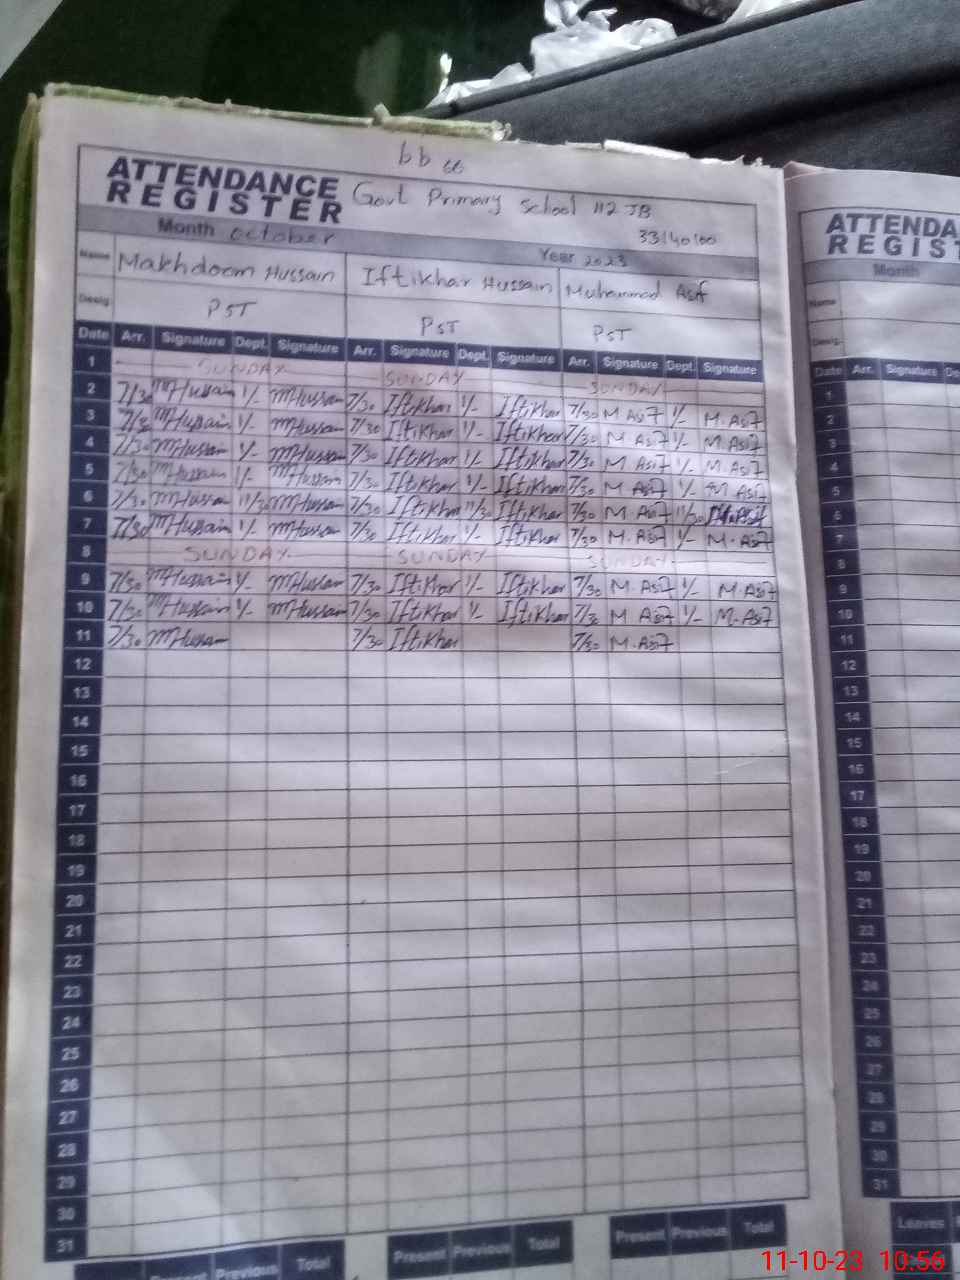 bb 66
ATTENDANCE REGISTER Govt Primary School 112 JB
33140100
Month October Year 2023
Name Makhdoom Hussain Iftikhar Hussain Muhammad Asif
Desig. PST PST PST
Date Arr. Signature Dept. Signature Arr. Signature Dept. Signature Arr. Signature Dept. Signature
1 SUNDAY SUNDAY SUNDAY
2 7/30 MHussain 1/- MHussain 7/30 Iftikhar 1/- Iftikhar 7/30 M Asif 1/- M.Asif
3 7/30 MHussain 1/- MHussain 7/30 Iftikhar 1/- Iftikhar 7/30 M Asif 1/- M.Asif
4 7/30 MHussain 1/- MHussain 7/30 Iftikhar 1/- Iftikhar 7/30 M Asif 1/- M.Asif
5 7/30 MHussain 1/- MHussain 7/30 Iftikhar 1/- Iftikhar 7/30 M Asif 1/- M Asif
6 7/30 MHussain 11/30 MHussain 7/30 Iftikhar 11/30 Iftikhar 7/30 M.Asif 11/30
7 7/30 MHussain 1/- MHussain 7/30 Iftikhar 1/- Iftikhar 7/30 M.Asif 1/- M.Asif
8 SUNDAY SUNDAY SUNDAY
9 7/30 MHussain 1/- MHussain 7/30 Iftikhar 1/- Iftikhar 7/30 M.Asif 1/- M.Asif
10 7/30 MHussain 1/- MHussain 7/30 Iftikhar 1/- Iftikhar 7/30 M Asif 1/- M.Asif
11 7/30 MHussain 7/30 Iftikhar 7/30 M.Asif
12
13
14
15
16
17
18
19
20
21
22
23
24
25
26
27
28
29
30
31
Present Previous Total Present Previous Total Present Previous Total
ATTENDA
REGIST
Month
Name
Desig.
Date Arr. Signature De
1
2
3
4
5
6
7
8
9
10
11
12
13
14
15
16
17
18
19
20
21
22
23
24
25
26
27
28
29
30
31
Leaves
11-10-23 10:56